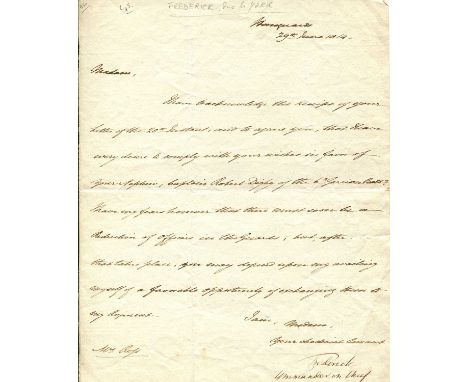 FREDERICK, Duke of YORK
Horseguards
29th June 1814.
Madam,
I have to acknowledge the receipt of your
letter of the 20th Instant, and to assure you, that I have
every desire to comply with your wishes in favor of
your Nephew, Captain Robert of the 6th Garrison Batt.n
I have my fears however that there must soon be a
Reduction of Officers in the Guards; but, after
that takes place, you may depend upon my availing
myself of a favorable opportunity of exchanging him to
my Regiment.
I am, Madam
Your obedient Servant
Frederick
Commander in Chief
Mrs